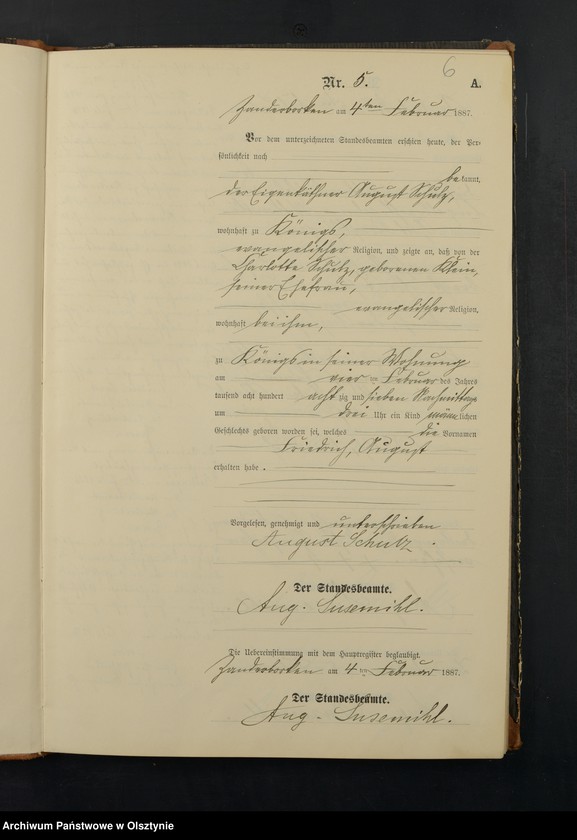 6
Nr. 5. A.
Zanderborken am 4ten Februar 1887.
Vor dem unterzeichneten Standesbeamten erschien heute, der Per-
sönlichkeit nach
bekannt,
der Eigenkäthner August Schulz,
wohnhaft zu Königs,
evangelischer Religion, und zeigte an, daß von der
Charlotte Schulz, geborenen Klein,
seiner Ehefrau,
evangelischer Religion,
wohnhaft bei ihm,
zu Königs in seiner Wohnung
am vier ten Februar des Jahres
tausend acht hundert achtzig und sieben Nachmittags
um drei Uhr ein Kind männlichen
Geschlechts geboren worden sei, welches die Vornamen
Friedrich, August
erhalten habe.
Vorgelesen, genehmigt und unterschrieben
August Schulz
Der Standesbeamte.
Aug. Susemihl.
Die Uebereinstimmung mit dem Hauptregister beglaubigt.
Zanderborken am 4 ten Februar 1887.
Der Standesbeamte.
Aug. Susemihl.
Archiwum Państwowe w Olsztynie